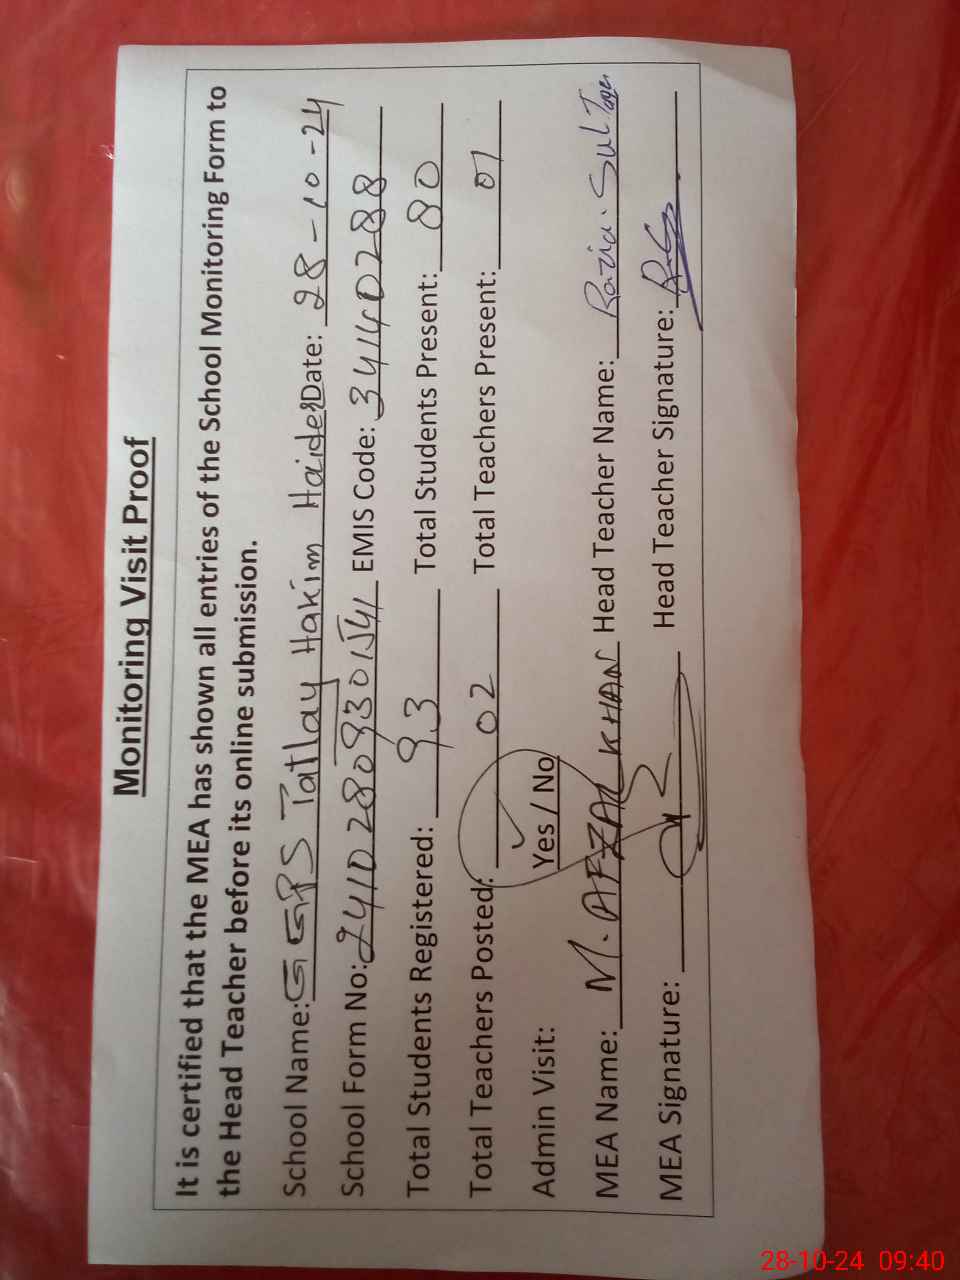 Monitoring Visit Proof
It is certified that the MEA has shown all entries of the School Monitoring Form to
the Head Teacher before its online submission.
School Name: GGPS Tatlay Hakim Haider Date: 28-10-24
School Form No: EMIS Code: 34140288
Total Students Registered: 93 Total Students Present: 80
Total Teachers Posted: 02 Total Teachers Present: 01
Admin Visit: Yes / No
MEA Name: M. AFZAL KHAN Head Teacher Name: Razia Sultana
MEA Signature: Head Teacher Signature:
28-10-24 09:40